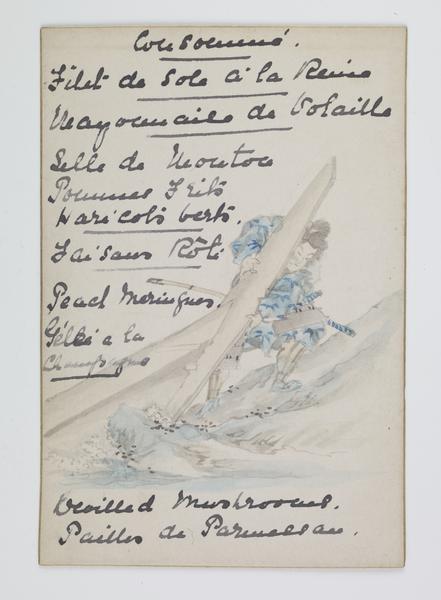 Consommé.
Filet de Sole à la Reine
Mayonnaise de Volaille
Selle de Mouton
Pommes Frits
Haricots verts.
Faisans Rôti
Peach Meringues.
Gélée a la
Champagne
Devilled Mushrooms.
Pailles de Parmesan.